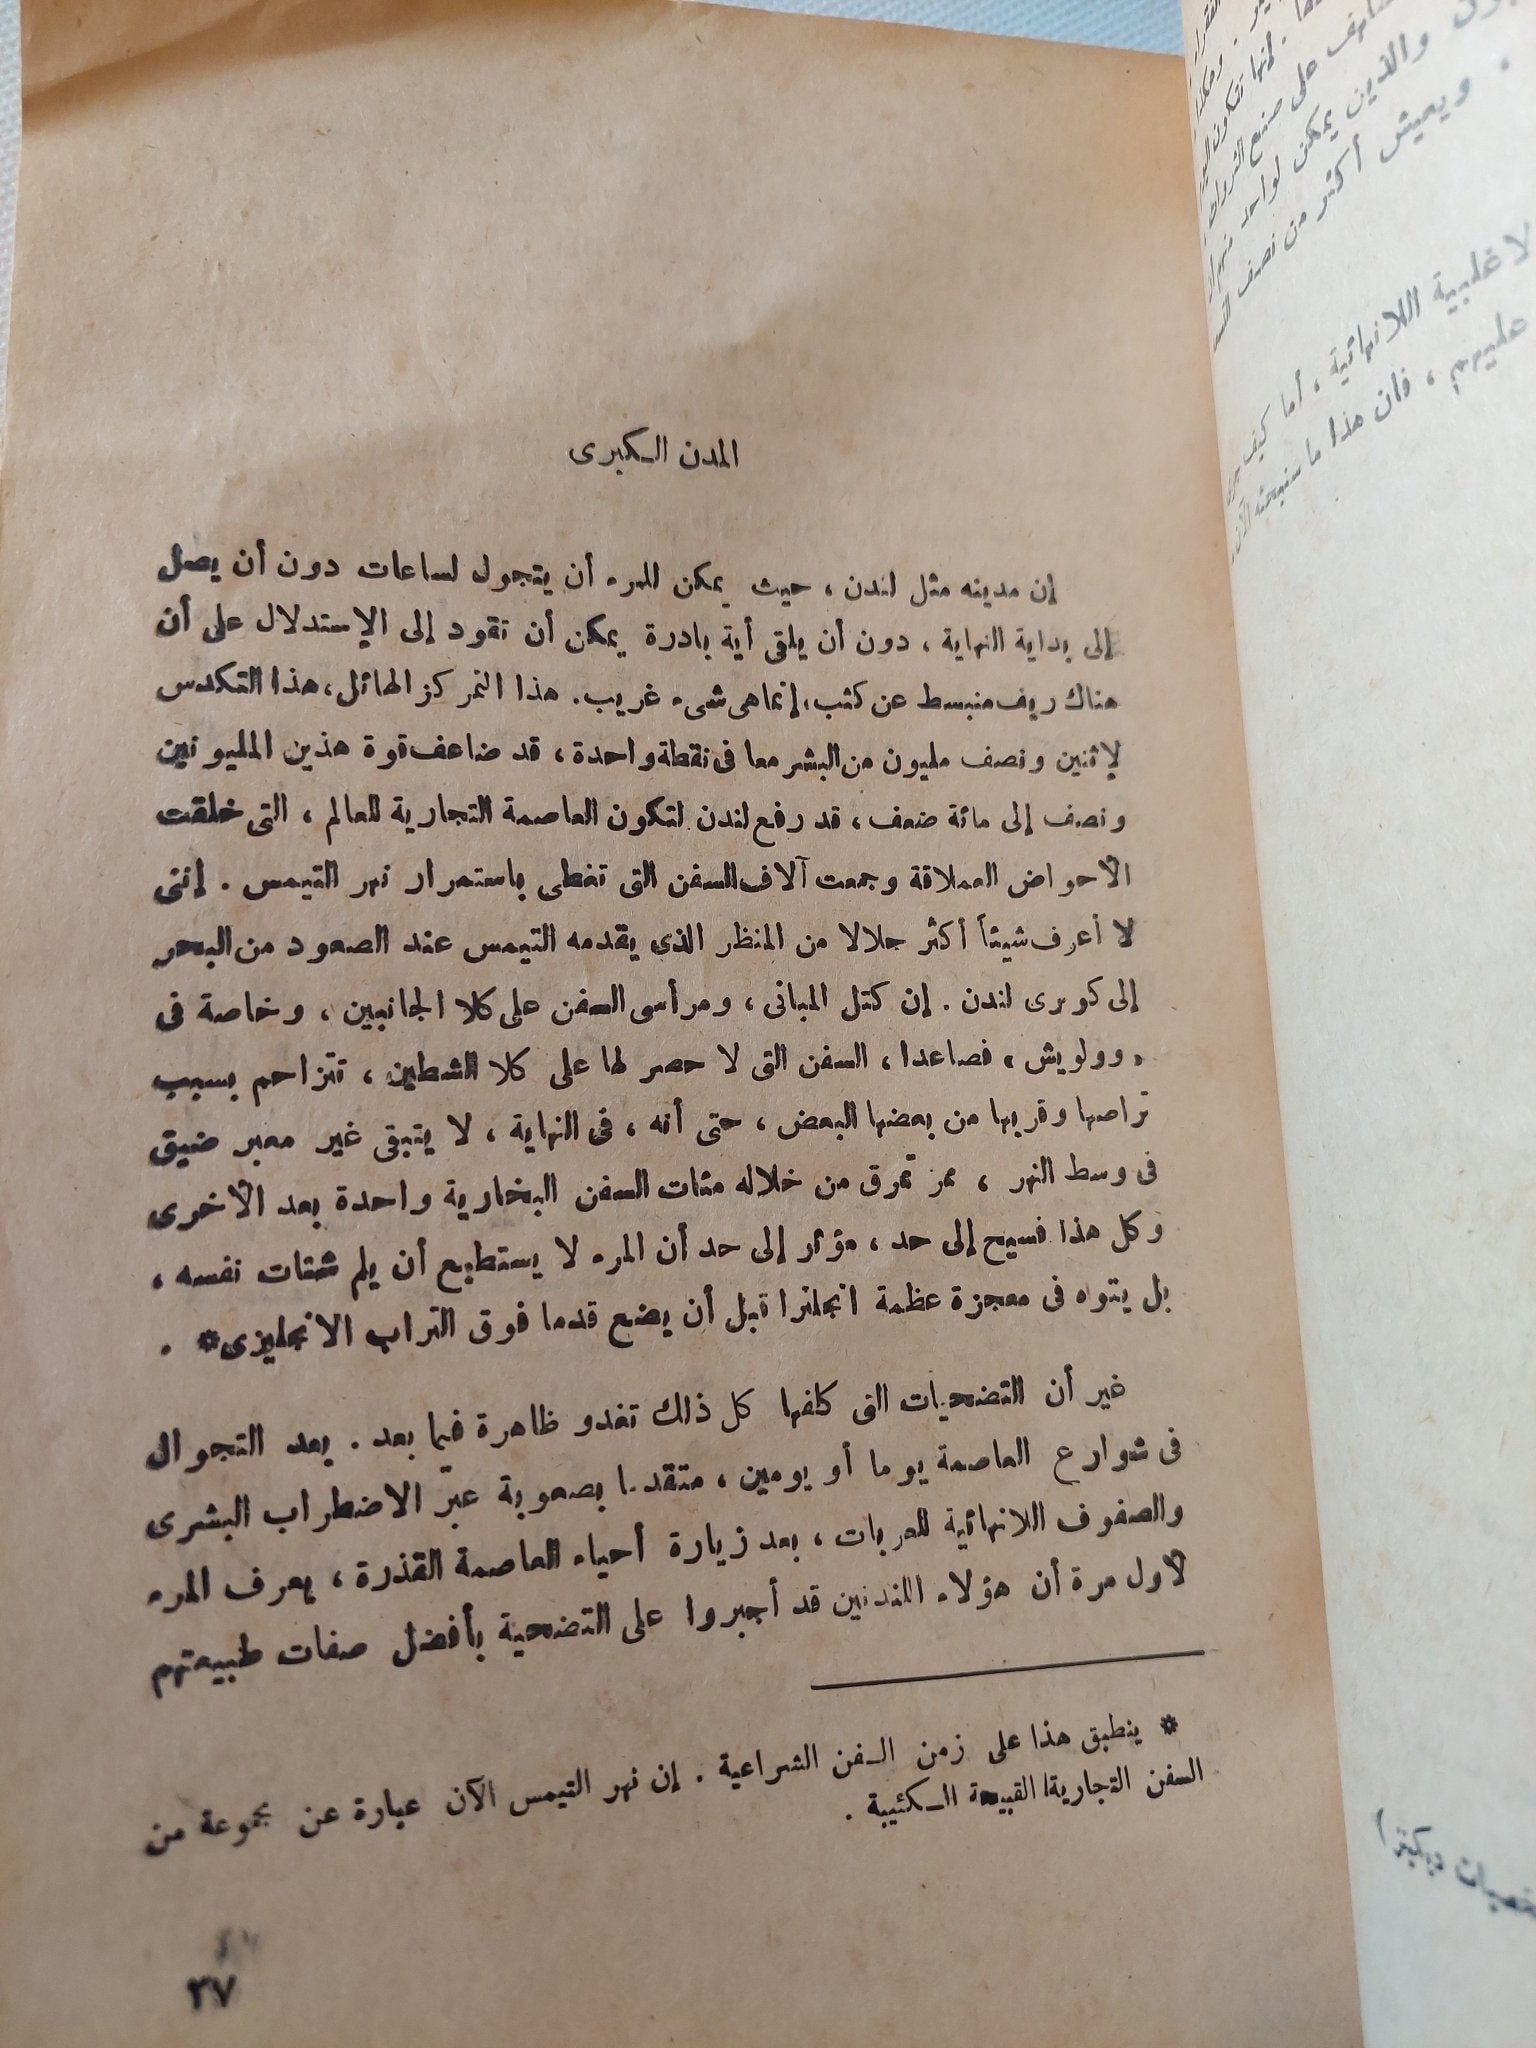 المدن الكبرى
إن مدينه مثل لندن ، حيث يمكن للمرء أن يتجول لساعات دون أن يصل
إلى بداية النهاية ، دون أن يلقى أية بادرة يمكن أن تقود إلى الإستدلال على أن
هناك ريف منبسط عن كثب ، إنما هى شىء غريب . هذا التمركز الهائل ، هذا التكدس
لإثنين ونصف مليون من البشر معا فى نقطة واحدة ، قد ضاعف قوة هذين المليونين
ونصف إلى مائة ضعف ، قد رفع لندن لتكون العاصمة التجارية للعالم ، التى خلقت
الاحواض العملاقة وجمعت آلاف السفن التى تغطى باستمرار نهر التيمس . إننى
لا أعرف شيئاً أكثر جلالا من المنظر الذى يقدمه التيمس عند الصعود من البحر
إلى كوبرى لندن . إن كتل المبانى ، ومرأسى السفن على كلا الجانبين ، وخاصة فى
« وولويش » فصاعدا ، السفن التى لا حصر لها على كلا الشطين ، تتزاحم بسبب
تراصها وقربها من بعضها البعض ، حتى أنه ، فى النهاية ، لا يتبقى غير معبر ضيق
فى وسط النهر ، ممر تمرق من خلاله مئات السفن البخارية واحدة بعد الاخرى
وكل هذا فسيح إلى حد ، مؤثر إلى حد أن المرء لا يستطيع أن يلم شتات نفسه ،
بل يتوه فى معجزة عظمة انجلترا قبل أن يضع قدما فوق التراب الانجليزى* .
غير أن التضحيات التى كلفها كل ذلك تغدو ظاهرة فيما بعد . بعد التجوال
فى شوارع العاصمة يوما أو يومين ، متقدما بصعوبة عبر الاضطراب البشرى
والصفوف اللانهائية للعربات ، بعد زيارة أحياء العاصمة القذرة ، يعرف المرء
لاول مرة أن هؤلاء اللندنيين قد أجبروا على التضحية بأفضل صفات طبيعتهم
* ينطبق هذا على زمن السفن الشراعية . إن نهر التيمس الآن عبارة عن مجموعة من
السفن التجارية القبيحة الكئيبة .
٣٧
والذين يمكن لواحد
ويعيش أكثر من نصف
اللانهائية ، أما كيف
عليهم ، فان هذا ما سنبحثه الآن